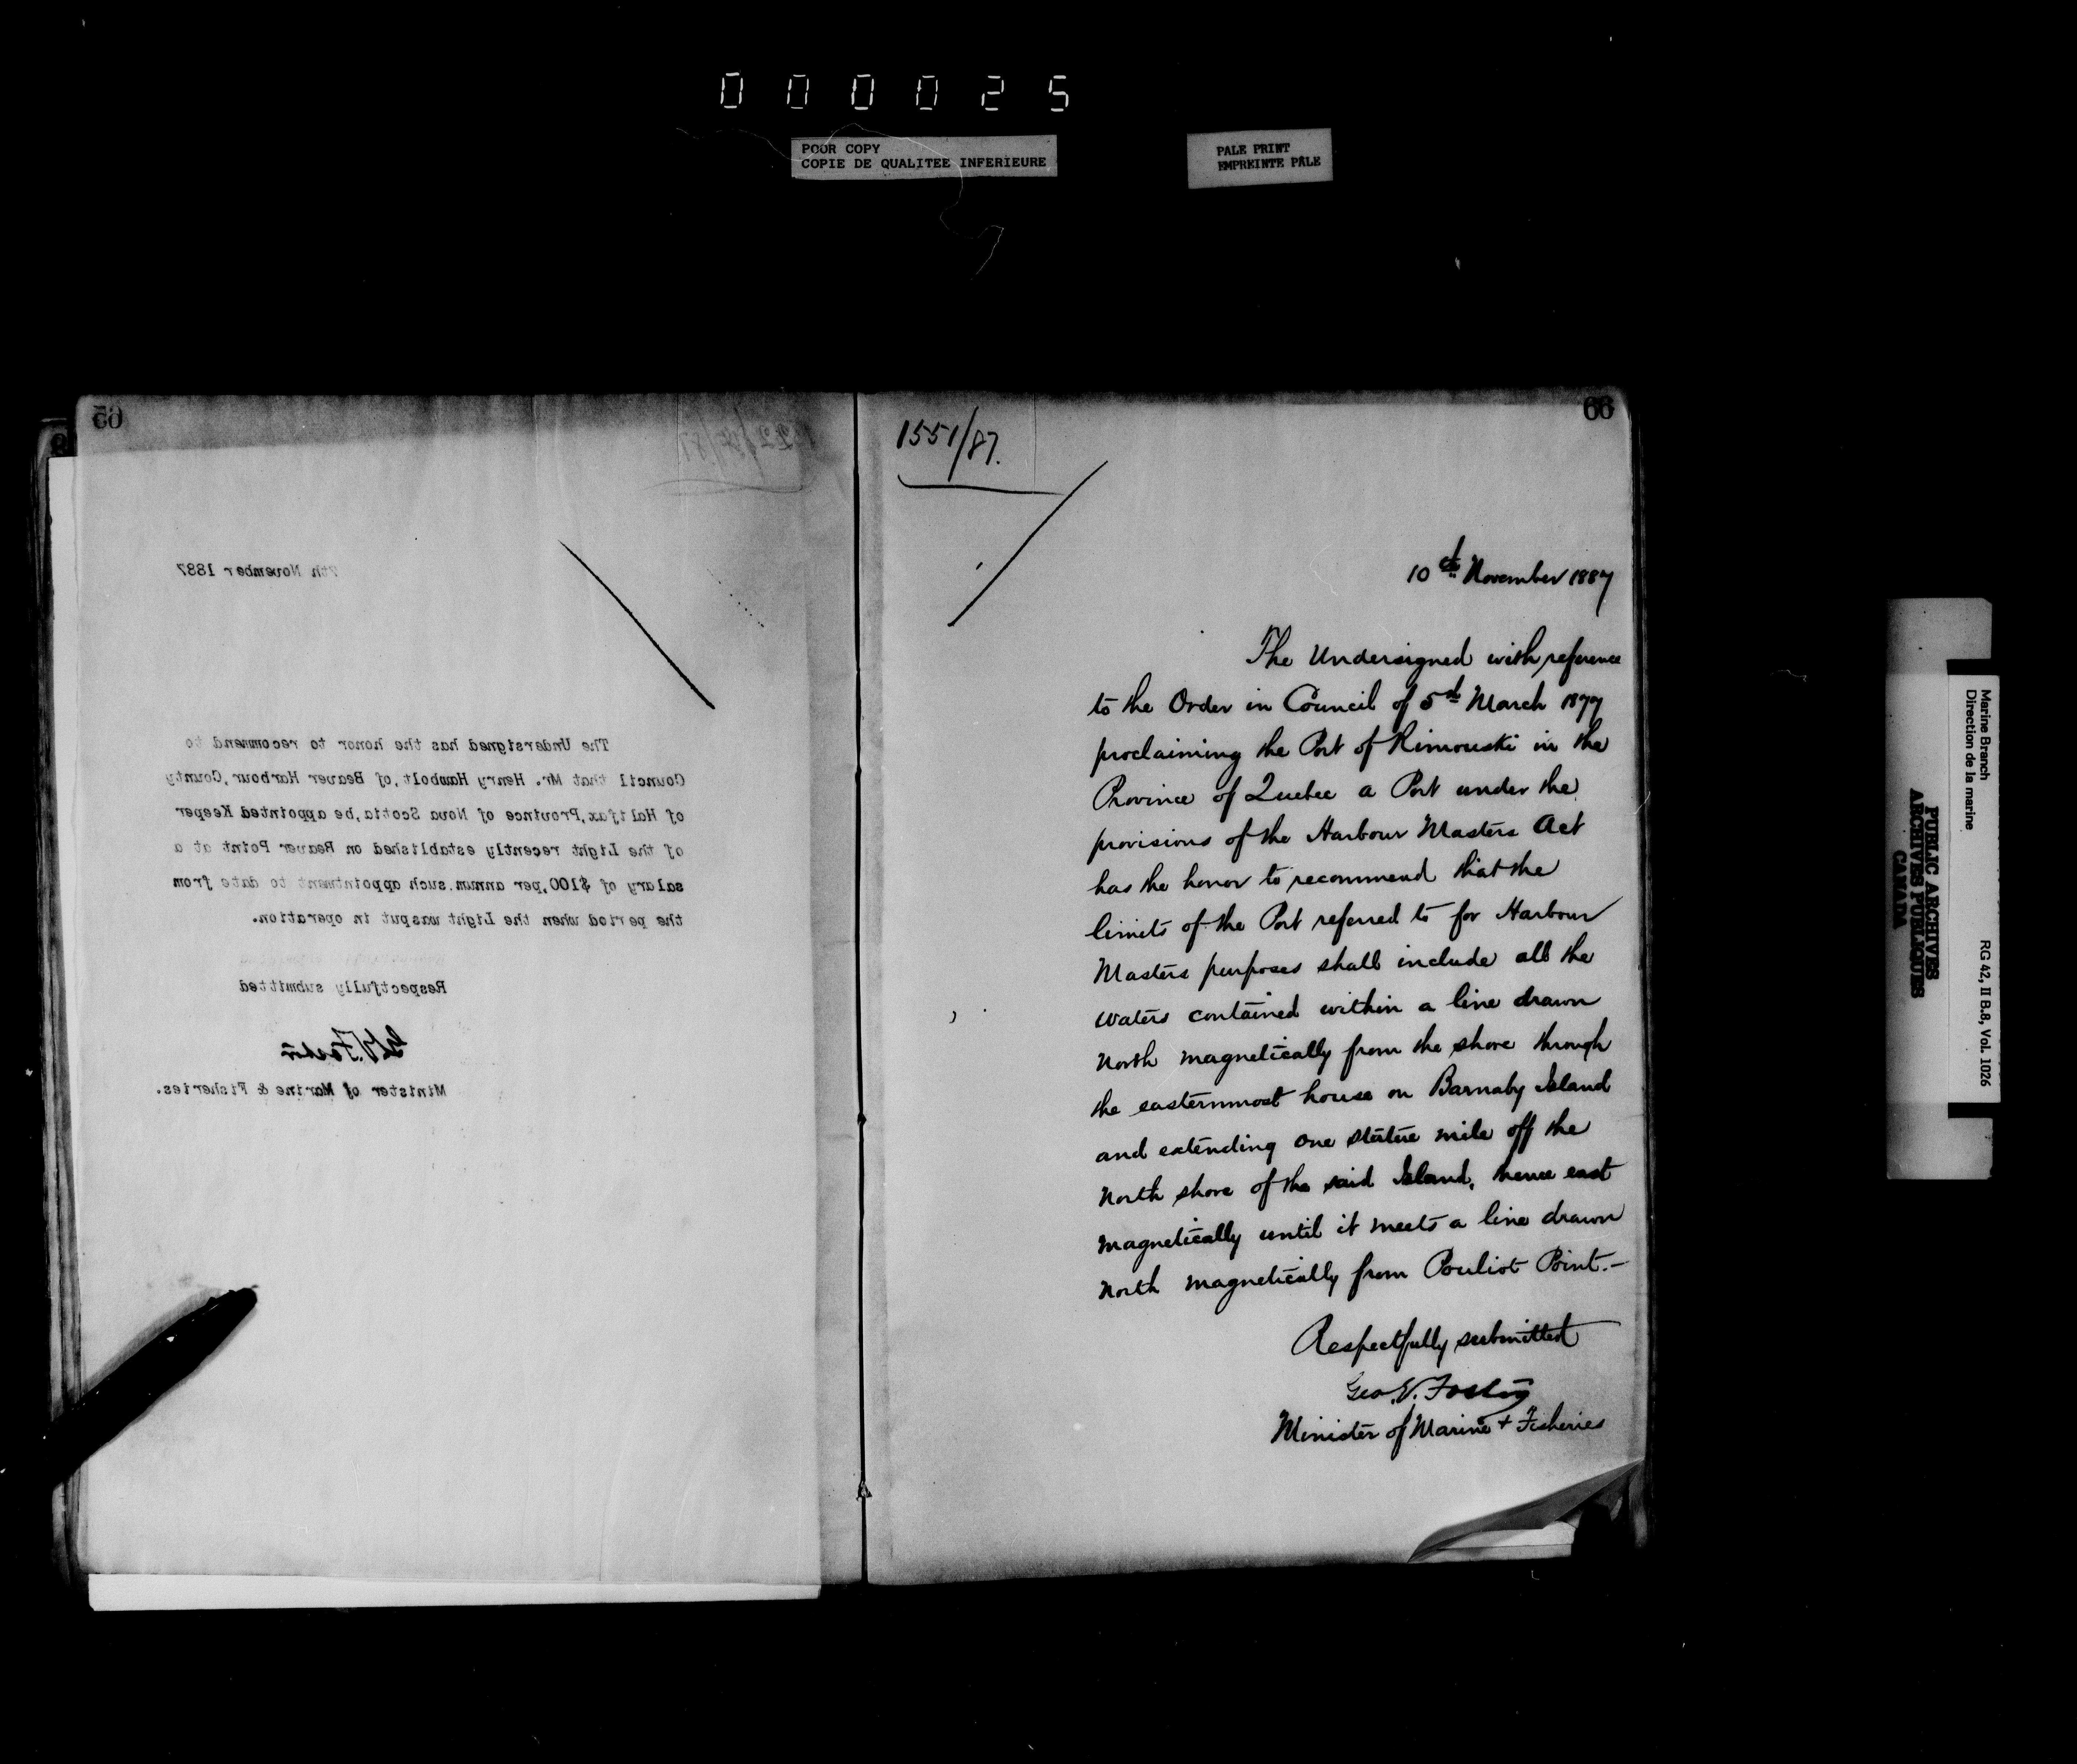 000025
POOR COPY
COPIE DE QUALITEE INFERIEURE
PALE PRINT
EMPREINTE PÂLE
7th November 1887
The Undersigned has the honor to recommend to
Council that Mr. Henry Hambolt, of Beaver Harbour, County
of Halifax, Province of Nova Scotia, be appointed Keeper
of the Light recently established on Beaver Point at a
salary of $100, per annum. such appointment to date from
the period when the Light was put in operation.
Respectfully submitted
Minister of Marine & Fisheries.
66
1551/87.
10th November 1887
The Undersigned with reference
to the Order in Council of 5th March 1877
proclaiming the Port of Rimouski in the
Province of Quebec a Port under the
provisions of the Harbour Masters Act
has the honor to recommend that the
limits of the Port referred to for Harbour
Masters purposes shall include all the
waters contained within a line drawn
North magnetically from the shore through
the easternmost house on Barnaby Island
and extending one statute mile off the
North shore of the said Island, thence east
magnetically until it meets a line drawn
North magnetically from Pouliot Point.-
Respectfully submitted
Geo. E. Foster
Minister of Marine + Fisheries
Marine Branch
Direction de la marine
RG 42, II B.8, Vol. 1026
PUBLIC ARCHIVES
ARCHIVES PUBLIQUES
CANADA